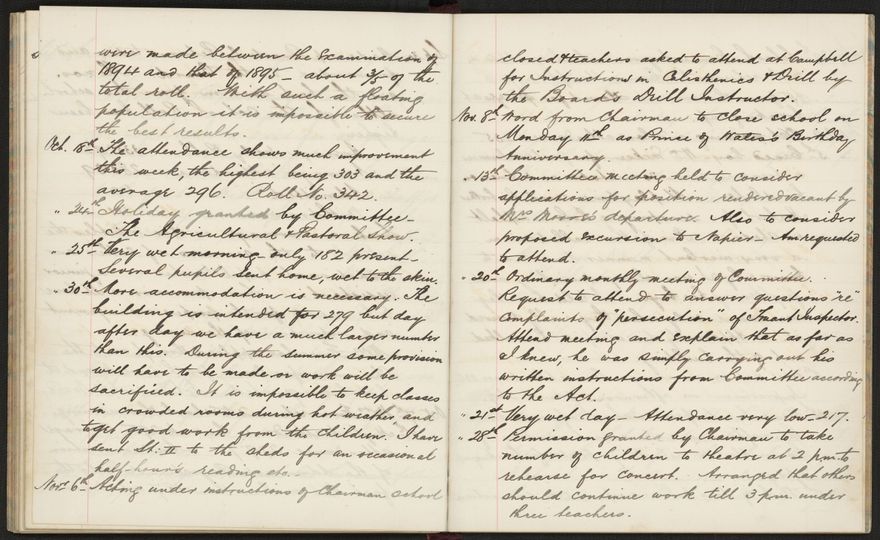 were made between the Examination of
1894 and that of 1895 – about 3/5 of the
total roll. With such a floating
population it is impossible to secure
the best results.
Oct. 18th The attendance shows much improvement
this week, the highest being 303 and the
average 296. Roll No. 342.
" 24th Holiday granted by Committee –
The Agricultural & Pastoral Show.
" 25th Very wet morning only 182 present –
Several pupils sent home, wet to the skin.
" 30th More accommodation is necessary. The
building is intended for 279 but day
after day we have a much larger number
than this. During the summer some provision
will have to be made or work will be
sacrificed. It is impossible to keep classes
in crowded rooms during hot weather and
to get good work from the children. I have
sent St: II to the sheds for an occasional
half-hour's reading etc. –
Novr 6th Acting under instructions of Chairman school
closed & teachers asked to attend at Campbell
for Instructions in Calisthenics & Drill by
the Board's Drill Instructor.
Nov. 8th Word from Chairman to close school on
Monday 11th as Prince of Wales's Birthday
Anniversary.
" 13th Committee meeting held to consider
applications for position rendered vacant by
departure. Also to consider
proposed excursion to Napier – Am requested
to attend.
" 20th Ordinary monthly meeting of Committee.
Request to attend to answer questions "re"
complaints of "persecution" of Truant Inspector.
Attend meeting and explain that as far as
I knew, he was simply carrying out his
written instructions from Committee according
to the Act.
" 21st Very wet day – Attendance very low – 217.
" 28th Permission granted by Chairman to take
number of children to theatre at 2 p.m. to
rehearse for concert. Arranged that others
should continue work till 3 p.m. under
three teachers.